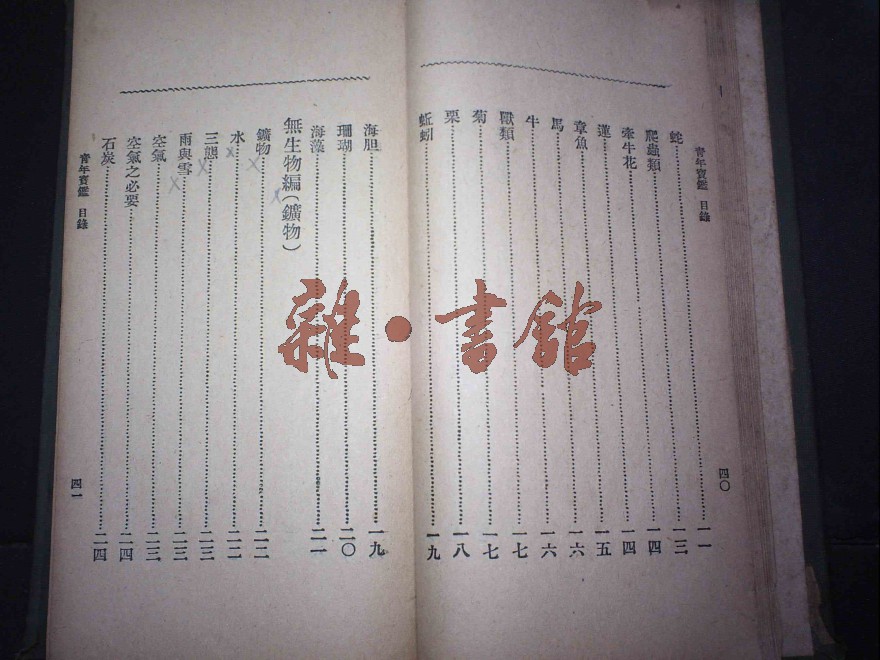 青年寶鑑 目錄
四〇
蛇 一一
爬蟲類 一三
牽牛花 一四
蓮 一四
章魚 一五
馬 一六
牛 一六
獸類 一七
菊 一七
栗 一八
蚯蚓 一九
海胆 一九
珊瑚 二〇
海藻 二一
無生物編(鑛物)
鑛物 二二
水 二二
三態 二三
雨與雪 二三
空氣 二三
空氣之必要 二四
石炭 二四
青年寶鑑 目錄
四一
雜·書館